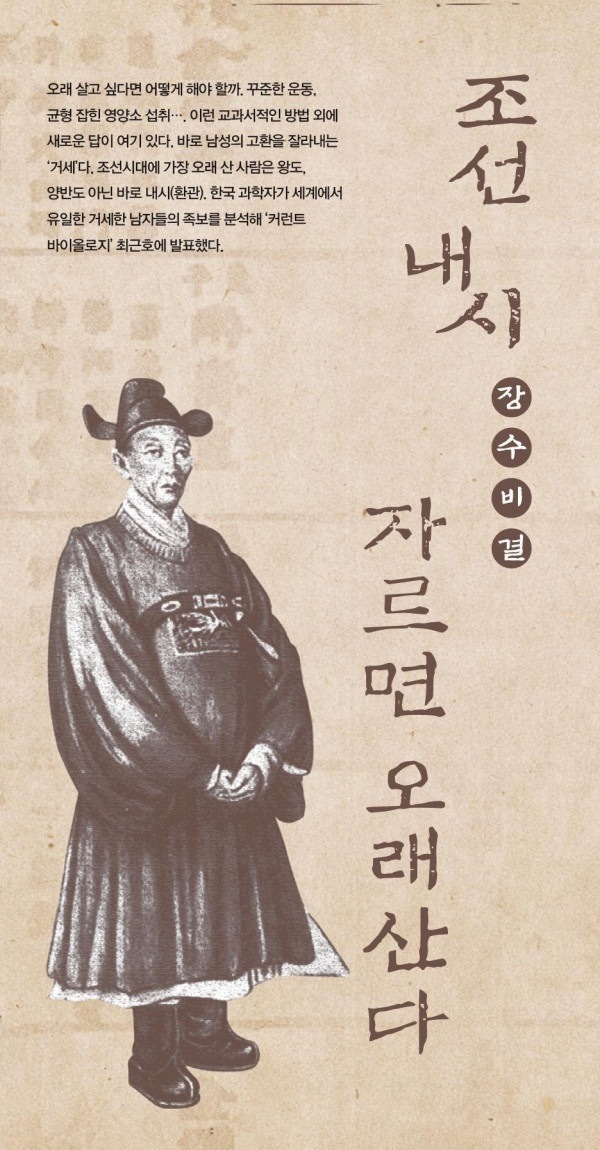 오래 살고 싶다면 어떻게 해야 할까. 꾸준한 운동,
균형 잡힌 영양소 섭취…. 이런 교과서적인 방법 외에
새로운 답이 여기 있다. 바로 남성의 고환을 잘라내는
‘거세’다. 조선시대에 가장 오래 산 사람은 왕도,
양반도 아닌 바로 내시(환관). 한국 과학자가 세계에서
유일한 거세한 남자들의 족보를 분석해 ‘커런트
바이올로지’ 최근호에 발표했다.
조선
내시
장수비결
자르면 오래산다